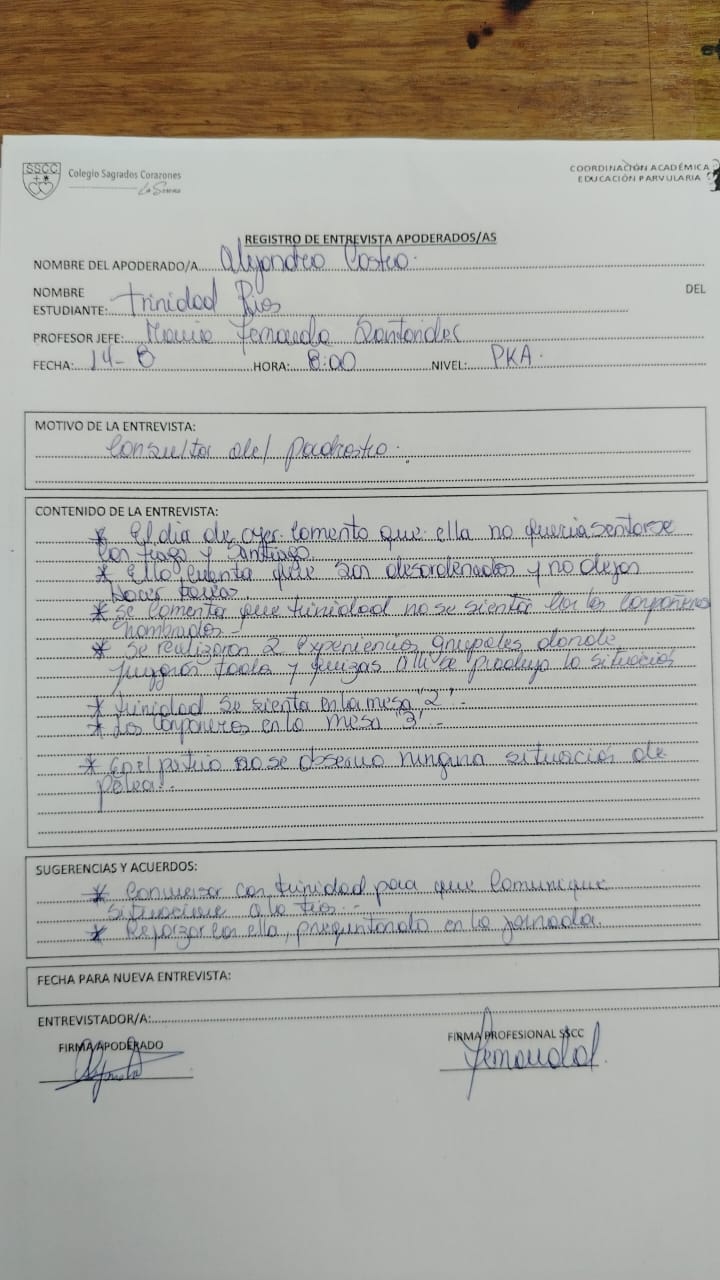 SSCC
Colegio Sagrados Corazones
La Serena
COORDINACIÓN ACADÉMICA
EDUCACIÓN PARVULARIA
REGISTRO DE ENTREVISTA APODERADOS/AS
NOMBRE DEL APODERADO/A Alejandro Castro.
NOMBRE DEL
ESTUDIANTE: Trinidad Rios
PROFESOR JEFE: Maria Fernanda Santander
FECHA: 14-8 HORA: 8:00 NIVEL: PKA.
MOTIVO DE LA ENTREVISTA:
Consulta del padrastro.
CONTENIDO DE LA ENTREVISTA:
* El dia de ayer comento que ella no queria sentarse
con Tiago y Santiago.
* Ella cuenta que son desordenados y no dejan
hacer
* Se comenta que trinidad no se sienta con los compañeros
nombrados -
* Se realizaron 2 experiencias grupales donde
jugaron todos y quizas alli se produjo la situación
* trinidad se sienta en la mesa "2" -
* Los compañeros en la mesa "3" -
* En el patio no se observo ninguna situación de
pelea.
SUGERENCIAS Y ACUERDOS:
* Conversar con trinidad para que comunique
situaciones a la tias. -
* Reforzar con ella, preguntando en la jornada.
FECHA PARA NUEVA ENTREVISTA:
ENTREVISTADOR/A:
FIRMA APODERADO
FIRMA PROFESIONAL SSCC